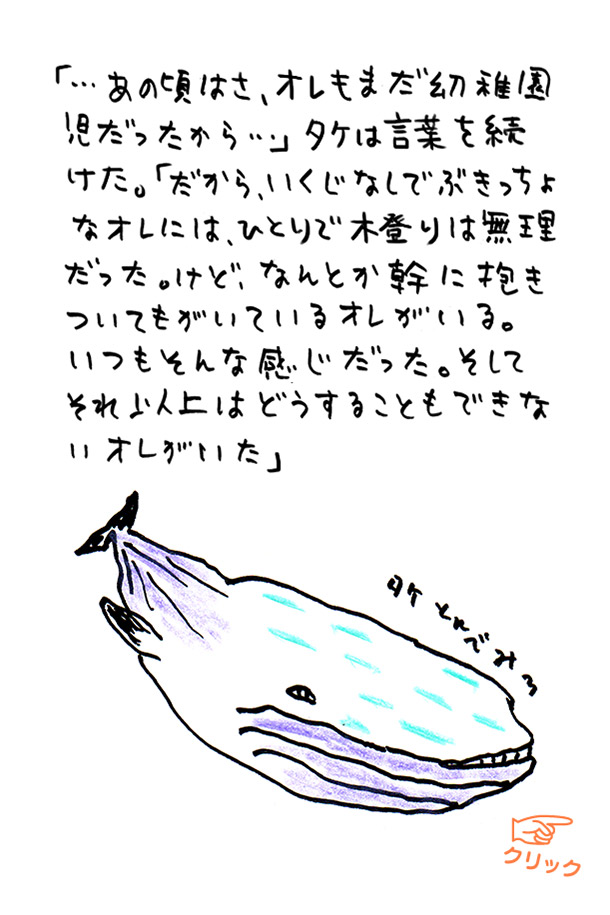 「…あの頃はさ、オレもまだ幼稚園
児だったから…」タケは言葉を続
けた。「だから、いくじなしでぶきっちょ
なオレには、ひとりで木登りは無理
だった。けど、なんとか幹に抱き
ついてもがいているオレがいる。
いつもそんな感じだった。そして
それ以上はどうすることもできな
いオレがいた」
タケ とんでみろ
クリック